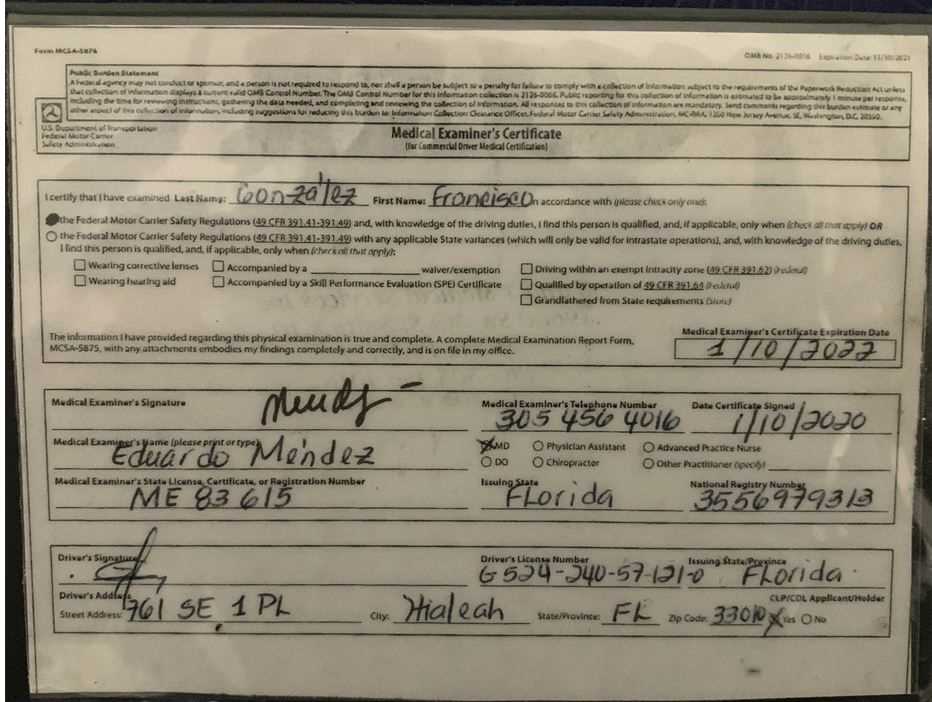 Form MCSA-5876
OMB No. 2126-0006 Expiration Date: 11/30/2021
Public Burden Statement
A Federal agency may not conduct or sponsor, and a person is not required to respond to, nor shall a person be subject to a penalty for failure to comply with a collection of information subject to the requirements of the Paperwork Reduction Act unless
that collection of information displays a current valid OMB Control Number. The OMB Control Number for this information collection is 2126-0006. Public reporting for this collection of information is estimated to be approximately 1 minute per response,
including the time for reviewing instructions, gathering the data needed, and completing and reviewing the collection of information. All responses to this collection of information are mandatory. Send comments regarding this burden estimate or any
other aspect of this collection of information, including suggestions for reducing this burden to: Information Collection Clearance Officer, Federal Motor Carrier Safety Administration, MC-RRA, 1200 New Jersey Avenue, SE, Washington, D.C. 20590.
U.S. Department of Transportation
Federal Motor Carrier
Safety Administration
Medical Examiner's Certificate
(for Commercial Driver Medical Certification)
I certify that I have examined Last Name: González First Name: Francisco in accordance with (please check only one):
the Federal Motor Carrier Safety Regulations (49 CFR 391.41-391.49) and, with knowledge of the driving duties, I find this person is qualified, and, if applicable, only when (check all that apply) OR
the Federal Motor Carrier Safety Regulations (49 CFR 391.41-391.49) with any applicable State variances (which will only be valid for intrastate operations), and, with knowledge of the driving duties,
I find this person is qualified, and, if applicable, only when (check all that apply):
Wearing corrective lenses Accompanied by a waiver/exemption Driving within an exempt intracity zone (49 CFR 391.62) (Federal)
Wearing hearing aid Accompanied by a Skill Performance Evaluation (SPE) Certificate Qualified by operation of 49 CFR 391.64 (Federal)
Grandfathered from State requirements (State)
The information I have provided regarding this physical examination is true and complete. A complete Medical Examination Report Form,
MCSA-5875, with any attachments embodies my findings completely and correctly, and is on file in my office.
Medical Examiner's Certificate Expiration Date
1/10/2022
Medical Examiner's Signature
Medical Examiner's Telephone Number
305 456 4016
Date Certificate Signed
1/10/2020
Medical Examiner's Name (please print or type)
Eduardo Méndez
MD Physician Assistant Advanced Practice Nurse
DO Chiropractor Other Practitioner (specify)
Medical Examiner's State License, Certificate, or Registration Number
ME 83615
Issuing State
FLorida
National Registry Number
3556979313
Driver's Signature
Driver's License Number
G524-240-57-121-0
Issuing State/Province
FLorida
Driver's Address
CLP/CDL Applicant/Holder
Street Address: 761 SE 1 PL City: Hialeah State/Province: FL Zip Code: 33010 Yes No